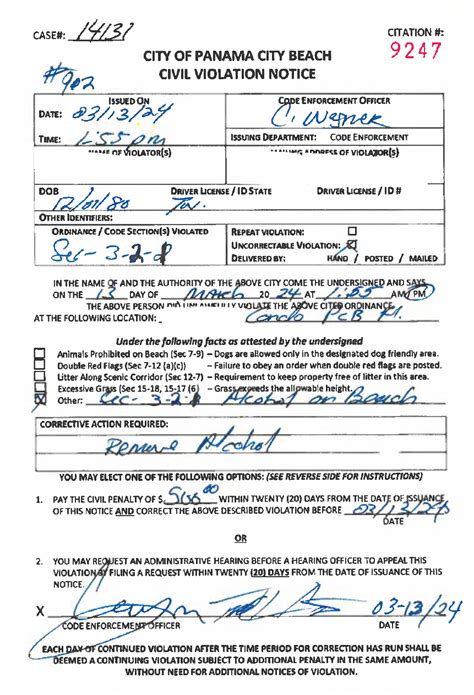 CASE#: 14131
CITATION #:
9247
CITY OF PANAMA CITY BEACH
CIVIL VIOLATION NOTICE
#902
ISSUED ON
DATE: 03/13/24
CODE ENFORCEMENT OFFICER
C. Wagner
TIME: 1:55 pm
ISSUING DEPARTMENT: CODE ENFORCEMENT
NAME OF VIOLATOR(S)
MAILING ADDRESS OF VIOLATOR(S)
DOB
DRIVER LICENSE / ID STATE
DRIVER LICENSE / ID #
OTHER IDENTIFIERS:
ORDINANCE / CODE SECTION(S) VIOLATED
Sec- 3-2-
REPEAT VIOLATION:
UNCORRECTABLE VIOLATION:
DELIVERED BY: HAND / POSTED / MAILED
IN THE NAME OF AND THE AUTHORITY OF THE ABOVE CITY COME THE UNDERSIGNED AND SAYS
ON THE DAY OF March 2024 AT 1:55 AM/PM
THE ABOVE PERSON DID UNLAWFULLY VIOLATE THE ABOVE CITED ORDINANCE
AT THE FOLLOWING LOCATION: PCB
Under the following facts as attested by the undersigned
Animals Prohibited on Beach (Sec 7-9) – Dogs are allowed only in the designated dog friendly area.
Double Red Flags (Sec 7-12 (a)(c)) – Failure to obey an order when double red flags are posted.
Litter Along Scenic Corridor (Sec 12-7) – Requirement to keep property free of litter in this area.
Excessive Grass (Sec 15-18, 15-17 (6) – Grass exceeds the allowable height.
Other: Sec- 3-2- Alcohol on Beach
CORRECTIVE ACTION REQUIRED:
Remove Alcohol
YOU MAY ELECT ONE OF THE FOLLOWING OPTIONS: (SEE REVERSE SIDE FOR INSTRUCTIONS)
1. PAY THE CIVIL PENALTY OF $ WITHIN TWENTY (20) DAYS FROM THE DATE OF ISSUANCE
OF THIS NOTICE AND CORRECT THE ABOVE DESCRIBED VIOLATION BEFORE 03/13/24
DATE
OR
2. YOU MAY REQUEST AN ADMINISTRATIVE HEARING BEFORE A HEARING OFFICER TO APPEAL THIS
VIOLATION BY FILING A REQUEST WITHIN TWENTY (20) DAYS FROM THE DATE OF ISSUANCE OF THIS
NOTICE.
X 03-13/24
CODE ENFORCEMENT OFFICER
DATE
EACH DAY OF CONTINUED VIOLATION AFTER THE TIME PERIOD FOR CORRECTION HAS RUN SHALL BE
DEEMED A CONTINUING VIOLATION SUBJECT TO ADDITIONAL PENALTY IN THE SAME AMOUNT,
WITHOUT NEED FOR ADDITIONAL NOTICES OF VIOLATION.